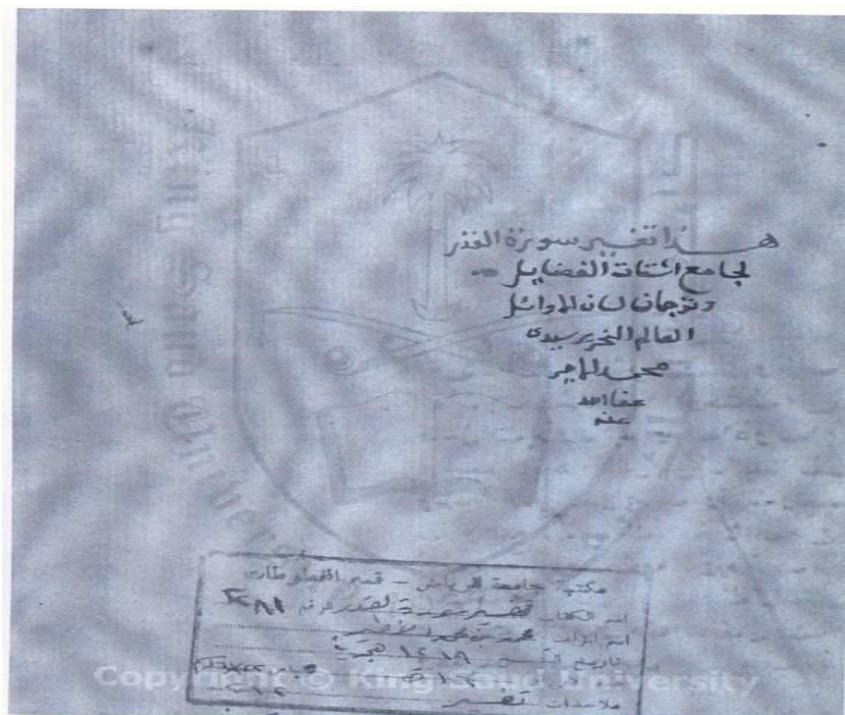 هذا تفسير سورة القدر
لجامع اشتات الفضايل
وترجمان لسان الاوائل
العالم النحرير سيدى
محمد الامير
عفا الله
عنه
King Saud University
مكتبة جامعة الرياض - قسم المخطوطات
اسم الكتاب تفسير سورة القدر الرقم
اسم المؤلف محمد بن محمد الأمير
تاريخ النسخ ١٢١٨ هجرية
ملاحظات تفسير
Copyright © King Saud University